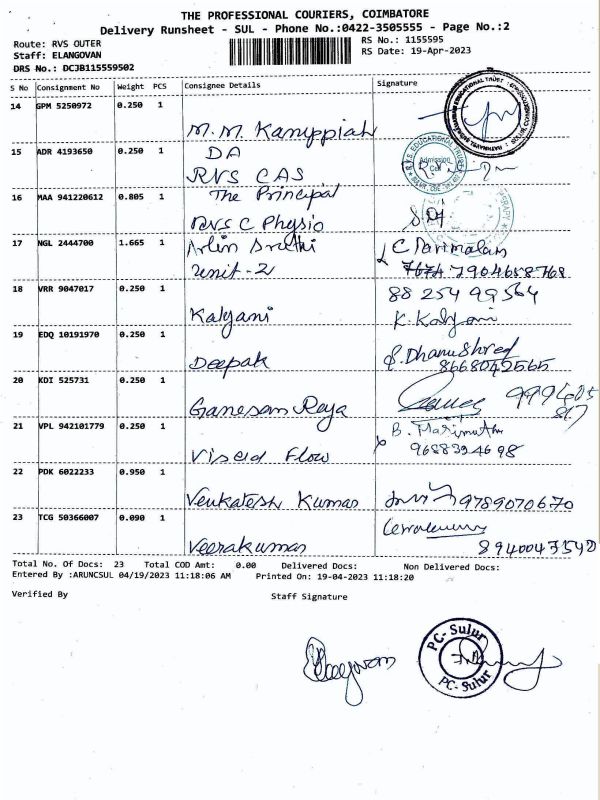 THE PROFESSIONAL COURIERS, COIMBATORE
Delivery Runsheet - SUL - Phone No.:0422-3505555 - Page No.:2
Route: RVS OUTER
RS No.: 1155595
Staff: ELANGOVAN
RS Date: 19-Apr-2023
DRS No.: DCJB115559502
S No Consignment No Weight PCS Consignee Details Signature
14 GPM 5250972 0.250 1
M.M. Karuppiah
15 ADR 4193650 0.250 1 DA
RVS CAS
RVS EDUCATIONAL TRUST
Admission Cell
16 MAA 941220612 0.805 1 The Principal
RVS C Physio
17 NGL 2444700 1.665 1 Arlin Sruthi C Parimalam
Unit-2 7904658768
18 VRR 9047017 0.250 1 88 254 99564
Kalyani K. Kalyani
19 EDQ 10191970 0.250 1
Deepak 8668042565
20 KDI 525731 0.250 1
Ganesan Raja
21 VPL 942101779 0.250 1
Viscid Flow 9688394698
22 PDK 6022233 0.950 1
Venkatesh Kumar 9789070670
23 TCG 50366007 0.090 1
Veerakumar
Total No. Of Docs: 23 Total COD Amt: 0.00 Delivered Docs: Non Delivered Docs:
Entered By :ARUNCSUL 04/19/2023 11:18:06 AM Printed On: 19-04-2023 11:18:20
Verified By Staff Signature
PC- Sulur
PC- Sulur